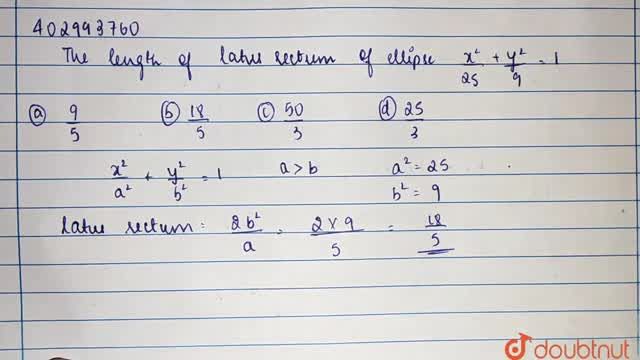 402993760
The length of latus rectum of ellipse x²/25 + y²/9 = 1
(a) 9/5 (b) 18/5 (c) 50/3 (d) 25/3
x²/a² + y²/b² = 1 a>b a² = 25
b² = 9
Latus rectum: 2b²/a = 2×9/5 = 18/5
doubtnut